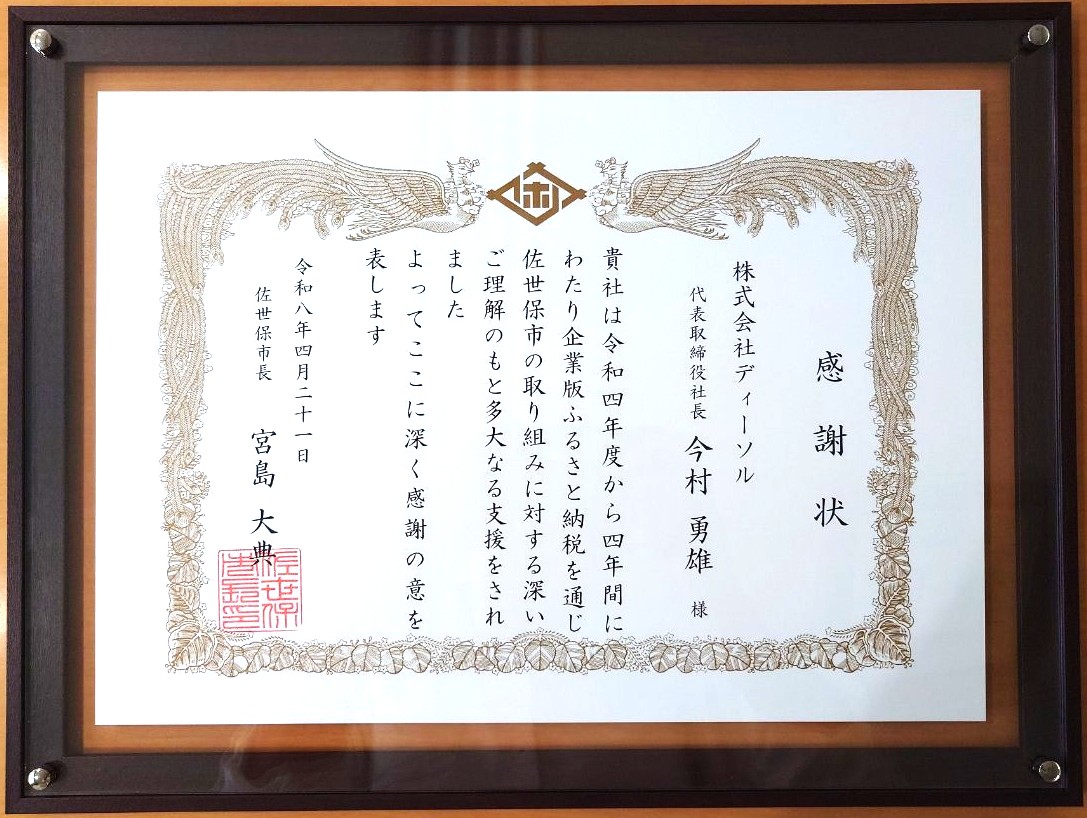 感謝状
株式会社ディーソル
代表取締役社長 今村 勇雄 様
貴社は令和四年度から四年間に
わたり企業版ふるさと納税を通じ
佐世保市の取り組みに対する深い
ご理解のもと多大なる支援をされ
ました
よってここに深く感謝の意を
表します
令和八年四月二十一日
佐世保市長 宮島 大典
佐世保
市長印